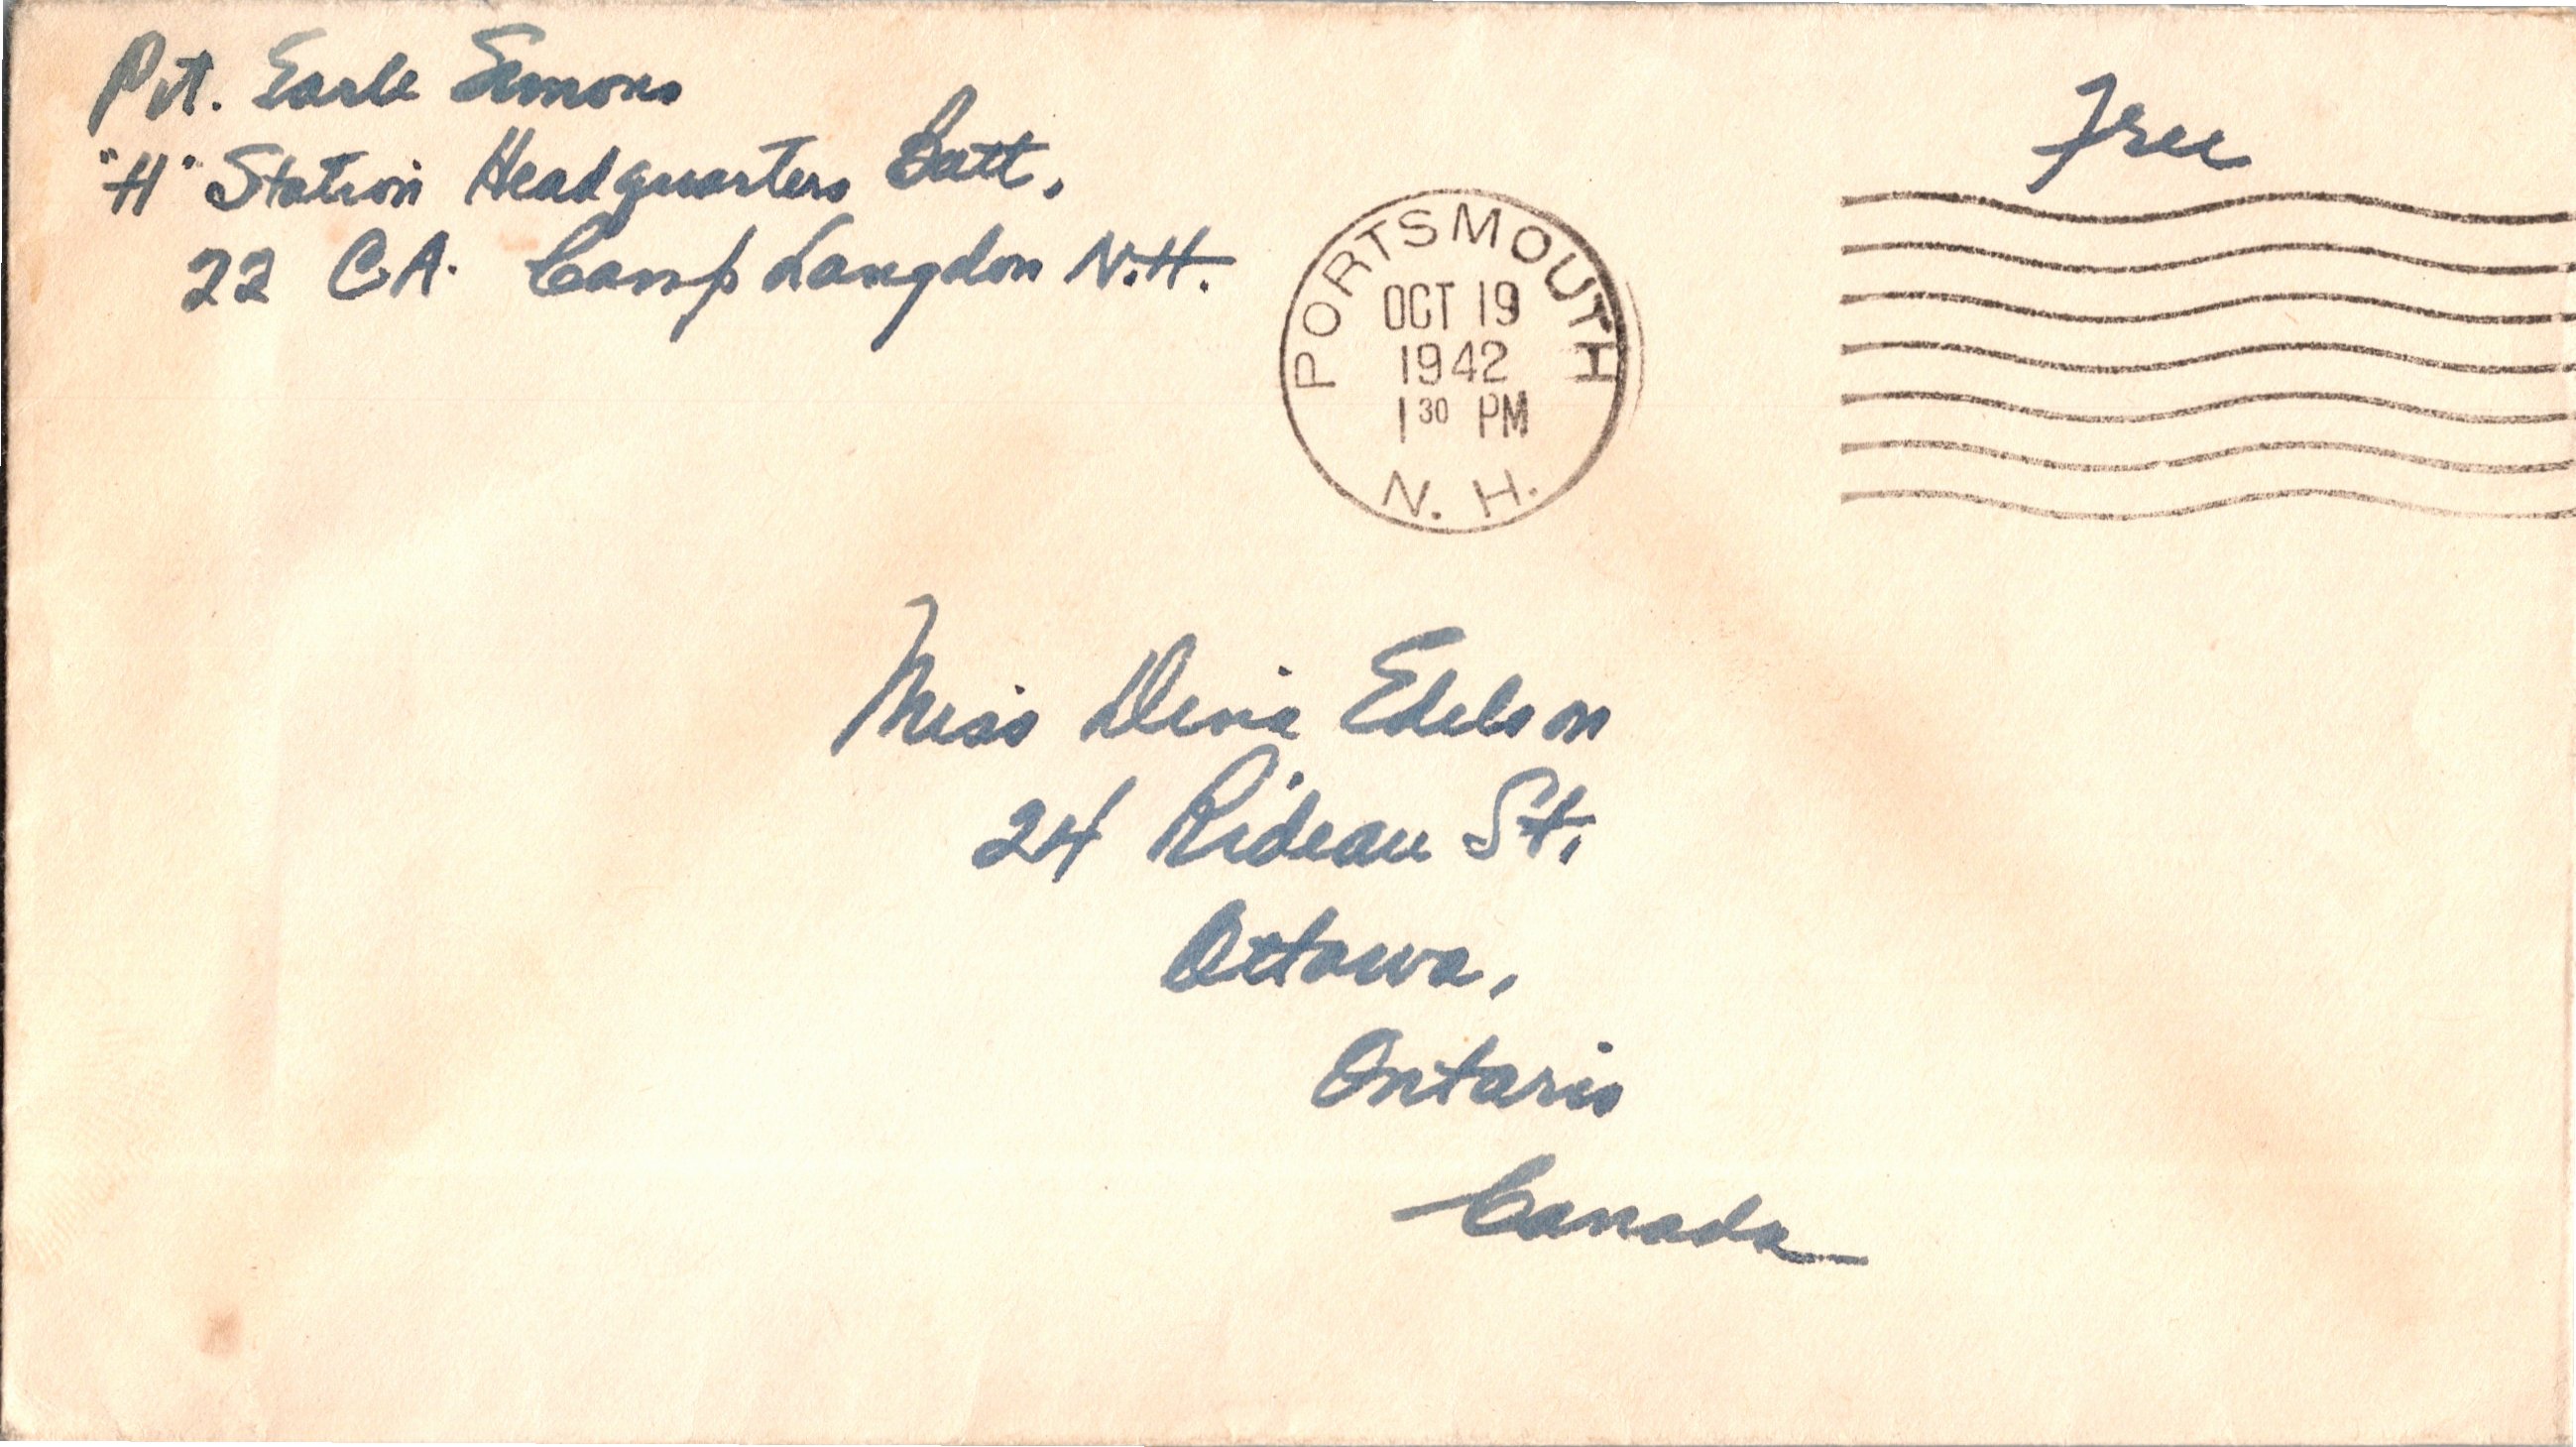 Pvt. Earle Simons
"H" Station Headquarters Batt.
22 C.A. Camp Langdon N.H.
Free
PORTSMOUTH
OCT 19
1942
1 30 PM
N. H.
Miss Edelson
24 Rideau St.
Ottawa,
Ontario
Canada